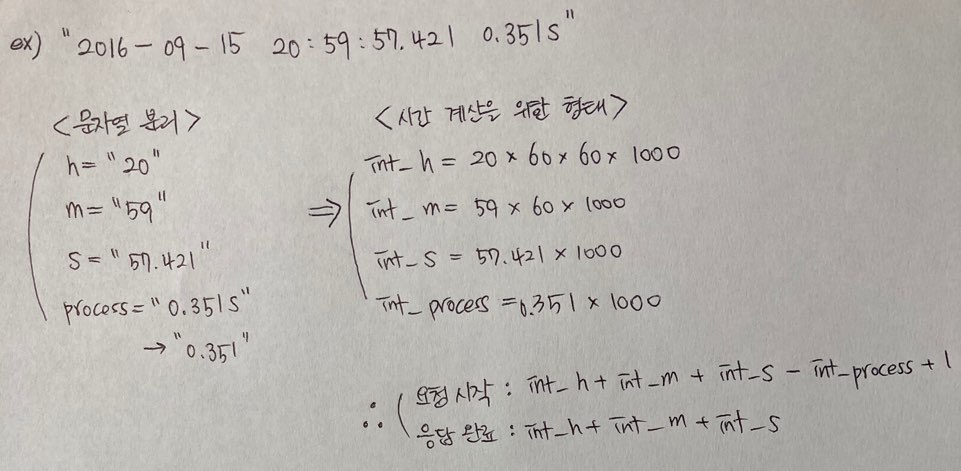 ex) "2016-09-15 20:59:57.421 0.351s"
<문자열 분리>
h= "20"
m= "59"
s= "57.421"
process= "0.351s"
→ "0.351"
<시간 계산을 위한 형태>
⇒
int_h = 20 × 60 × 60 × 1000
int_m = 59 × 60 × 1000
int_s = 57.421 × 1000
int_process = 0.351 × 1000
∴
요청 시작 : int_h + int_m + int_s - int_process + 1
응답 완료 : int_h + int_m + int_s